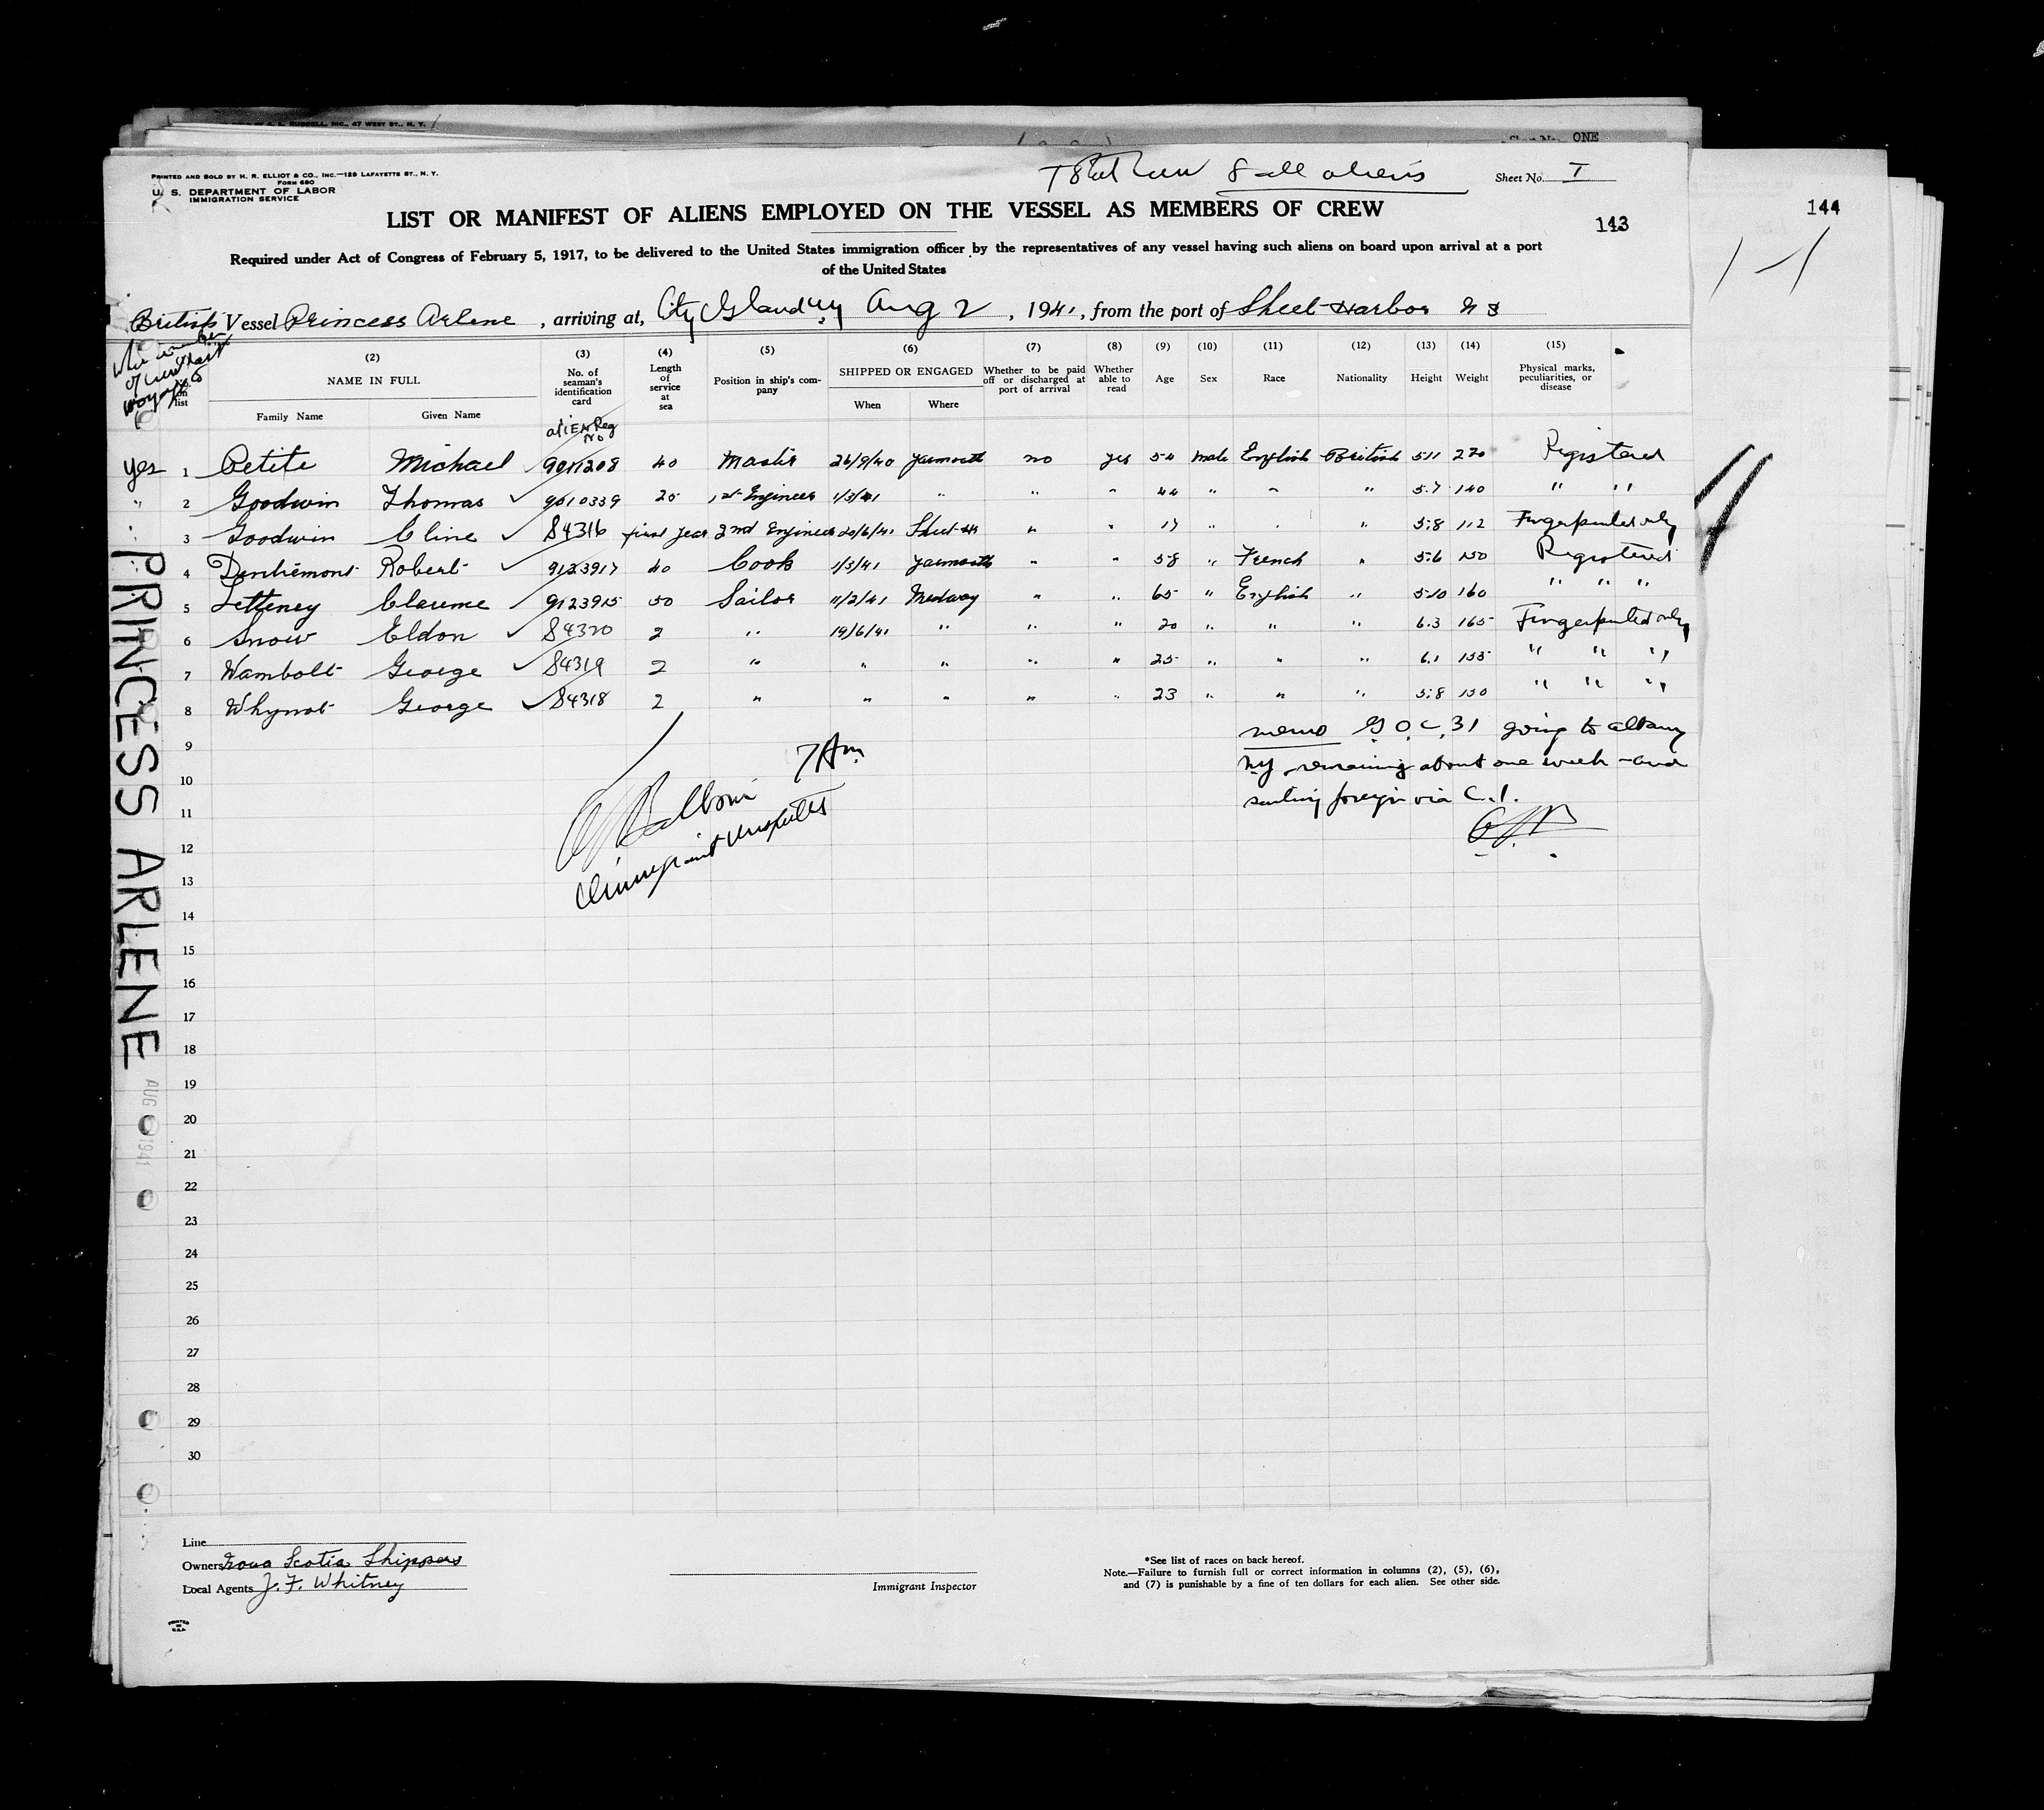 A. L. RUSSELL, INC., 47 WEST ST., N. Y.
ONE
PRINTED AND SOLD BY H. R. ELLIOT & CO., INC.—129 LAFAYETTE ST., N. Y.
FORM 680
U. S. DEPARTMENT OF LABOR
IMMIGRATION SERVICE
Total crew 8 all aliens
Sheet No. I
LIST OR MANIFEST OF ALIENS EMPLOYED ON THE VESSEL AS MEMBERS OF CREW
143
144
Required under Act of Congress of February 5, 1917, to be delivered to the United States immigration officer by the representatives of any vessel having such aliens on board upon arrival at a port
of the United States
British Vessel Princess Arlene, arriving at, City Island NY Aug 2, 1941, from the port of Sheet Harbor N S
member of last voyage
No. on list
(2) NAME IN FULL Family Name Given Name
(3) No. of seaman's identification card
alien Reg No
(4) Length of service at sea
(5) Position in ship's company
(6) SHIPPED OR ENGAGED When Where
(7) Whether to be paid off or discharged at port of arrival
(8) Whether able to read
(9) Age
(10) Sex
(11) Race
(12) Nationality
(13) Height
(14) Weight
(15) Physical marks, peculiarities, or disease
yes 1 Petite Michael 9011208 40 Master 26/9/40 Yarmouth no yes 54 male English British 5.11 220 Registered
" 2 Goodwin Thomas 9010339 25 1st Engineer 1/3/41 " " " 44 " " " 5.7 140 " "
" 3 Goodwin Cline 84316 first year 2nd Engineer 20/6/41 Sheet Hr " " 17 " " " 5.8 112 Fingerprinted only
4 Robert 9123917 40 Cook 1/3/41 Yarmouth " " 58 " French " 5.6 150 Registered
5 Letteney Clarence 9123915 50 Sailor 11/2/41 Medway " " 65 " English " 5.10 160 " " "
6 Snow Eldon 84320 2 " 19/6/41 " " " 20 " " " 6.3 165 Fingerprinted only
7 Wambolt George 84319 2 " " " " " 25 " " " 6.1 155 " " "
8 Whynot George 84318 2 " " " " " 23 " " " 5.8 150 " " "
9
10
11
12
13
14
15
16
17
18
19
20
21
22
23
24
25
26
27
28
29
30
7 Am
Immigrant Inspector
memo G.O.C. 31 going to Albany
NY remaining about one week and
sailing foreign via C.I.
PRINCESS ARLENE
AUG 1941
Line
Owners Nova Scotia Shippers
Local Agents J. F. Whitney
Immigrant Inspector
*See list of races on back hereof.
Note.—Failure to furnish full or correct information in columns (2), (5), (6),
and (7) is punishable by a fine of ten dollars for each alien. See other side.
PRINTED IN U.S.A.